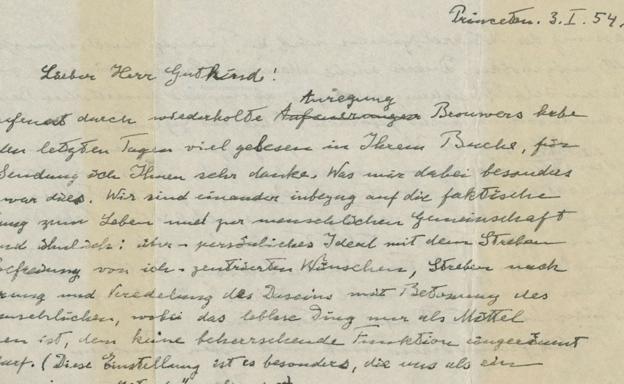 Princeton. 3. I. 54.
Lieber Herr Gutkind!
Anregung
durch wiederholte Aufmunterungen Brouwers habe
den letzten Tagen viel gelesen in Ihrem Buche, für
Sendung ich Ihnen sehr danke. Was mir dabei besonders
war dies. Wir sind einander inbezug auf die faktische
ung zum Leben und zur menschlichen Gemeinschaft
nd ähnlich: über-persönliches Ideal mit dem Streben
Befreiung von ich-zentrierten Wünschen, Streben nach
rung und Veredelung des Daseins mit Betonung des
nschlichen, wobei das leblose Ding nur als Mittel
en ist, dem keine beherrschende Funktion eingeräumt
arf. (Diese Einstellung ist es besonders, die uns als ein